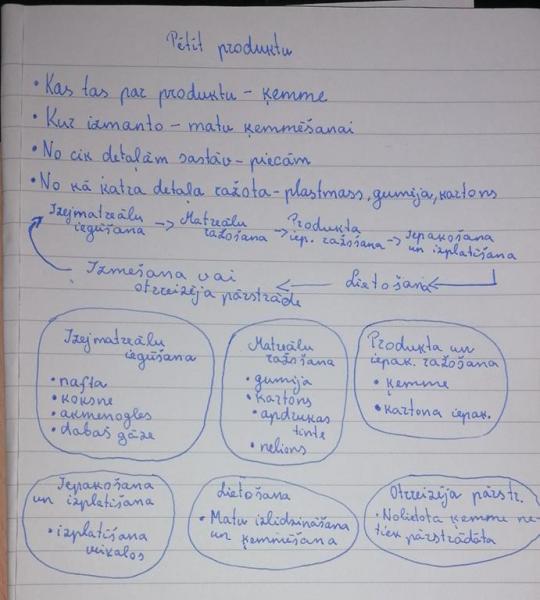 Pētīt produktu
• Kas tas par produktu – ķemme
• Kur izmanto – matu ķemmēšanai
• No cik detaļām sastāv – piecām
• No kā katra detaļa ražota – plastmass, gumija, kartons
Izejmatreālu iegūšana -> Matreālu ražošana -> Produkta iep. ražošana -> Iepakošana un izplatīšana
Izmešana vai otreizēja pārstrāde <- Lietošana <-
Izejmatreālu iegūšana
• nafta
• koksne
• akmenogles
• dabas gāze
Matreālu ražošana
• gumija
• kartons
• apdrukas tinte
• neilons
Produkta un iepak. ražošana
• ķemme
• kartona iepak.
Iepakošana un izplatīšana
• izplatīšana veikalos
Lietošana
• Matu izlīdzināšana un ķemmēšana
Otreizēja pārstr.
• Nolietota ķemme netiek pārstrādāta